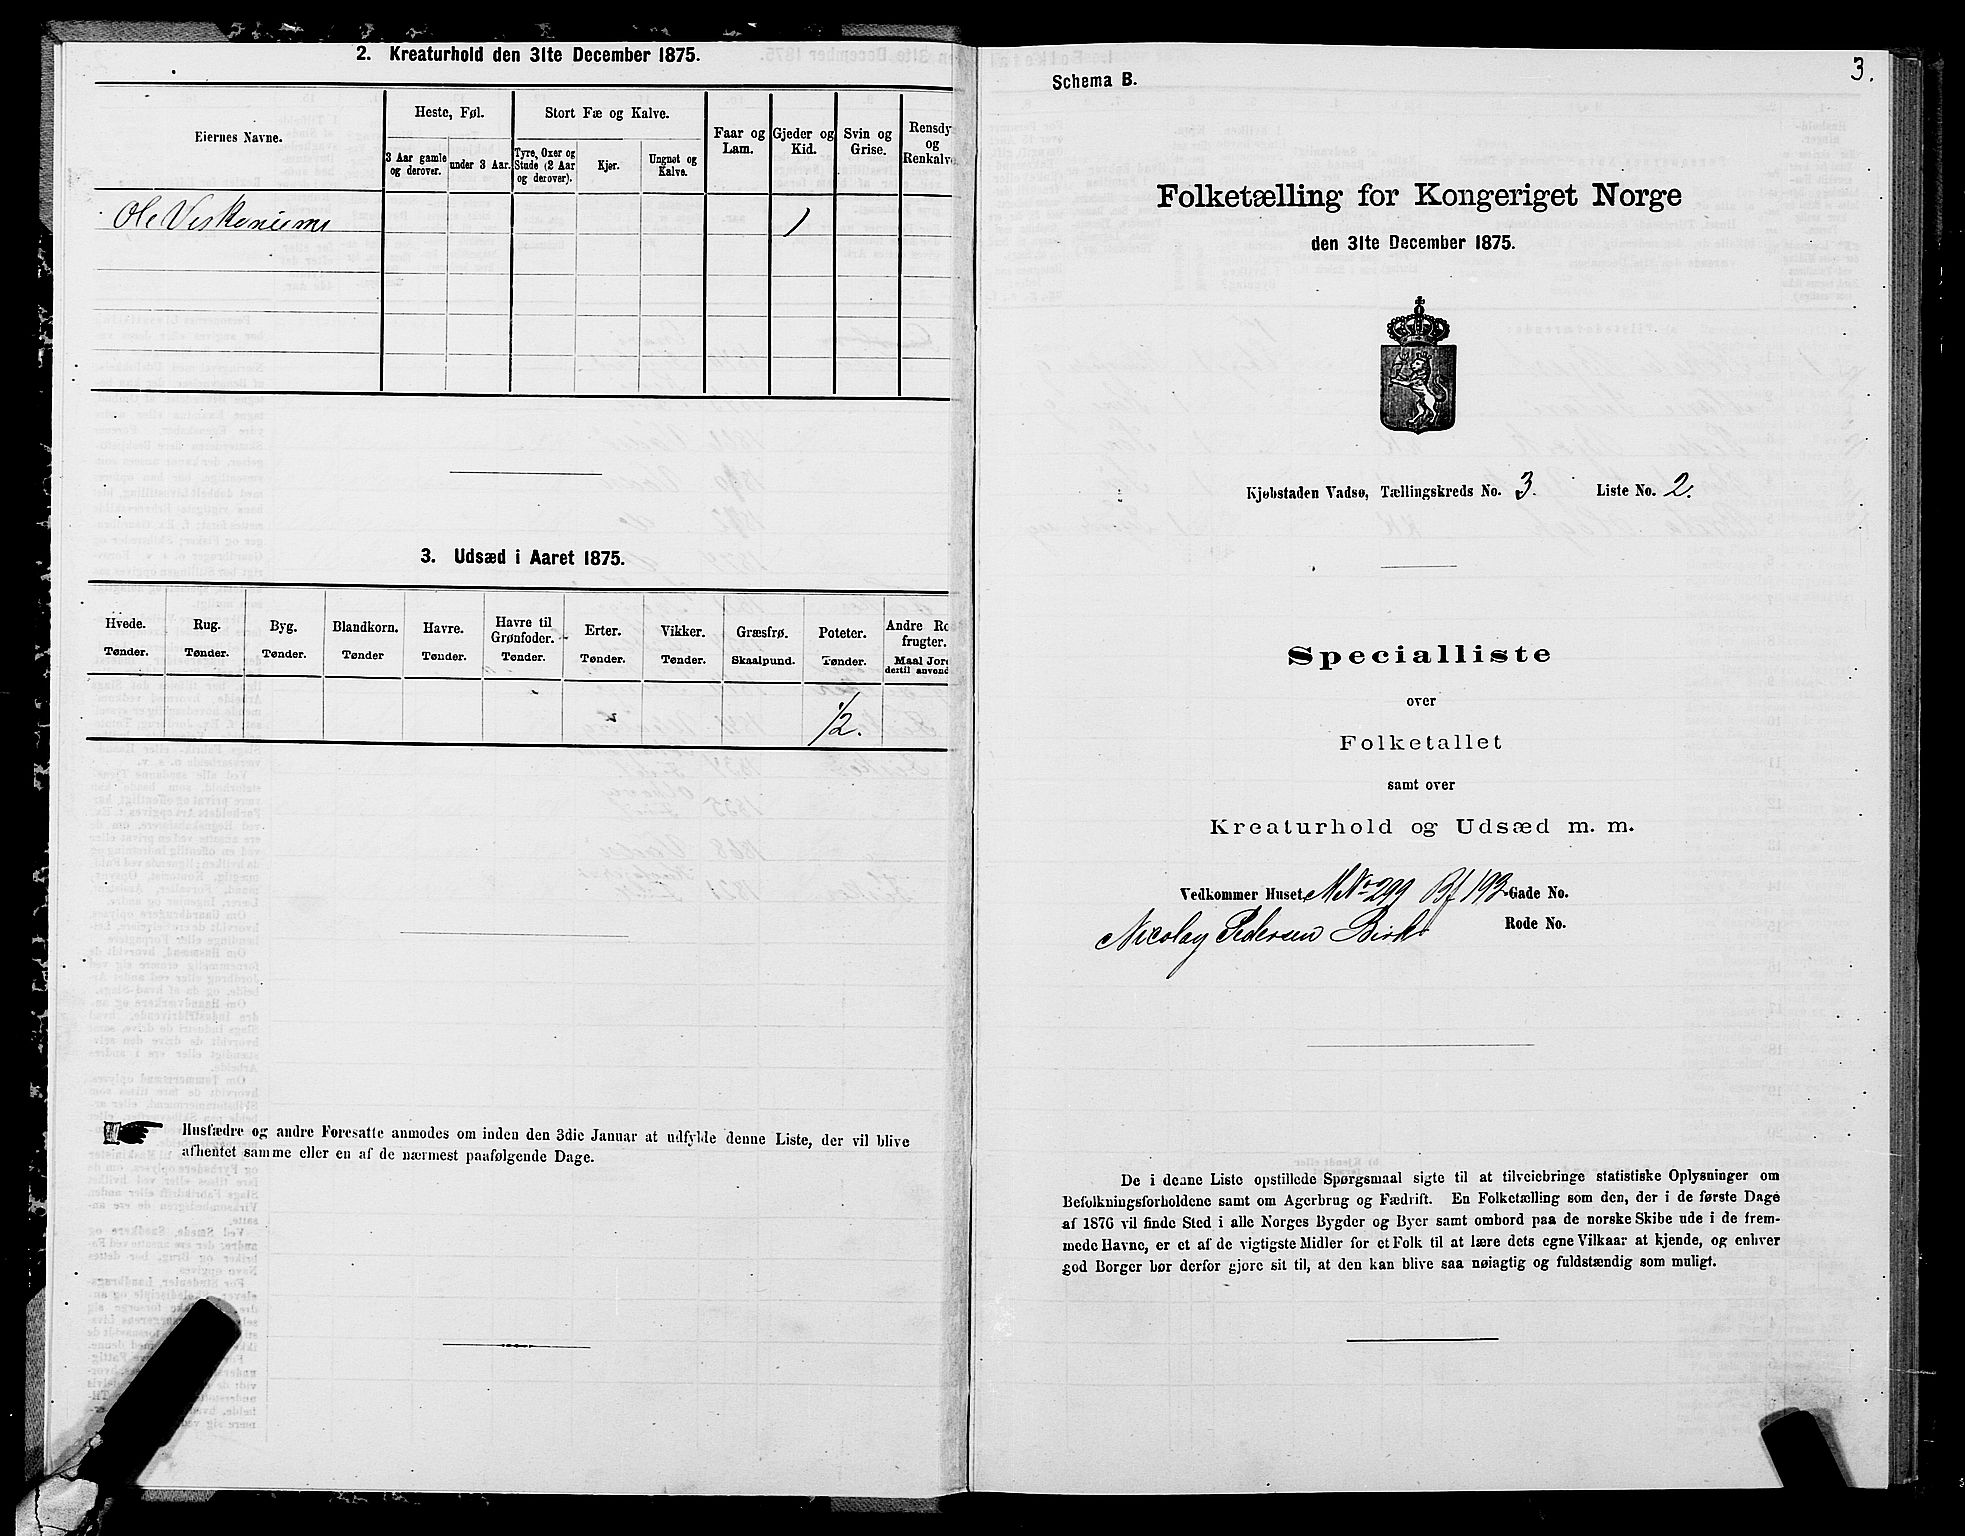 2. Kreaturhold den 31te December 1875.
Eiernes Navne.
Heste, Føl.
Stort Fæ og Kalve.
Faar og Lam.
Gjeder og Kid.
Svin og Grise.
Rensdy
og
Renkalve
3 Aar gamle og derover.
under 3 Aar.
Tyre, Oxer og Stude (2 Aar og derover).
Kjør.
Ungnøt og Kalve.
Ole 1
3. Udsæd i Aaret 1875.
Hvede. Tønder.
Rug. Tønder.
Byg. Tønder.
Blandkorn. Tønder
Havre. Tønder.
Havre til Grønfoder. Tønder.
Erter. Tønder.
Vikker. Tønder.
Græsfrø. Skaalpund.
Poteter. Tønder.
Andre Ro
frugter.
Maal Jor
dertil anvend
1/2.
Husfædre og andre Foresatte anmodes om inden den 3die Januar at udfylde denne Liste, der vil blive
afhentet samme eller en af de nærmest paafølgende Dage.
3.
Schema B.
Folketælling for Kongeriget Norge
den 31te December 1875.
Kjøbstaden Vadsø, Tællingskreds No. 3. Liste No. 2.
Specialliste
over
Folketallet
samt over
Kreaturhold og Udsæd m. m.
Vedkommer Huset, M No 299 Bf 193 -Gade No.
Nicolay Pedersen Rode No.
De i denne Liste opstillede Spørgsmaal sigte til at tilveiebringe statistiske Oplysninger om
Befolkningsforholdene samt om Agerbrug og Fædrift. En Folketælling som den, der i de første Dage
af 1876 vil finde Sted i alle Norges Bygder og Byer samt ombord paa de norske Skibe ude i de frem-
mede Havne, er et af de vigtigste Midler for et Folk til at lære dets egne Vilkaar at kjende, og enhver
god Borger bør derfor gjøre sit til, at den kan blive saa nøiagtig og fuldstændig som muligt.